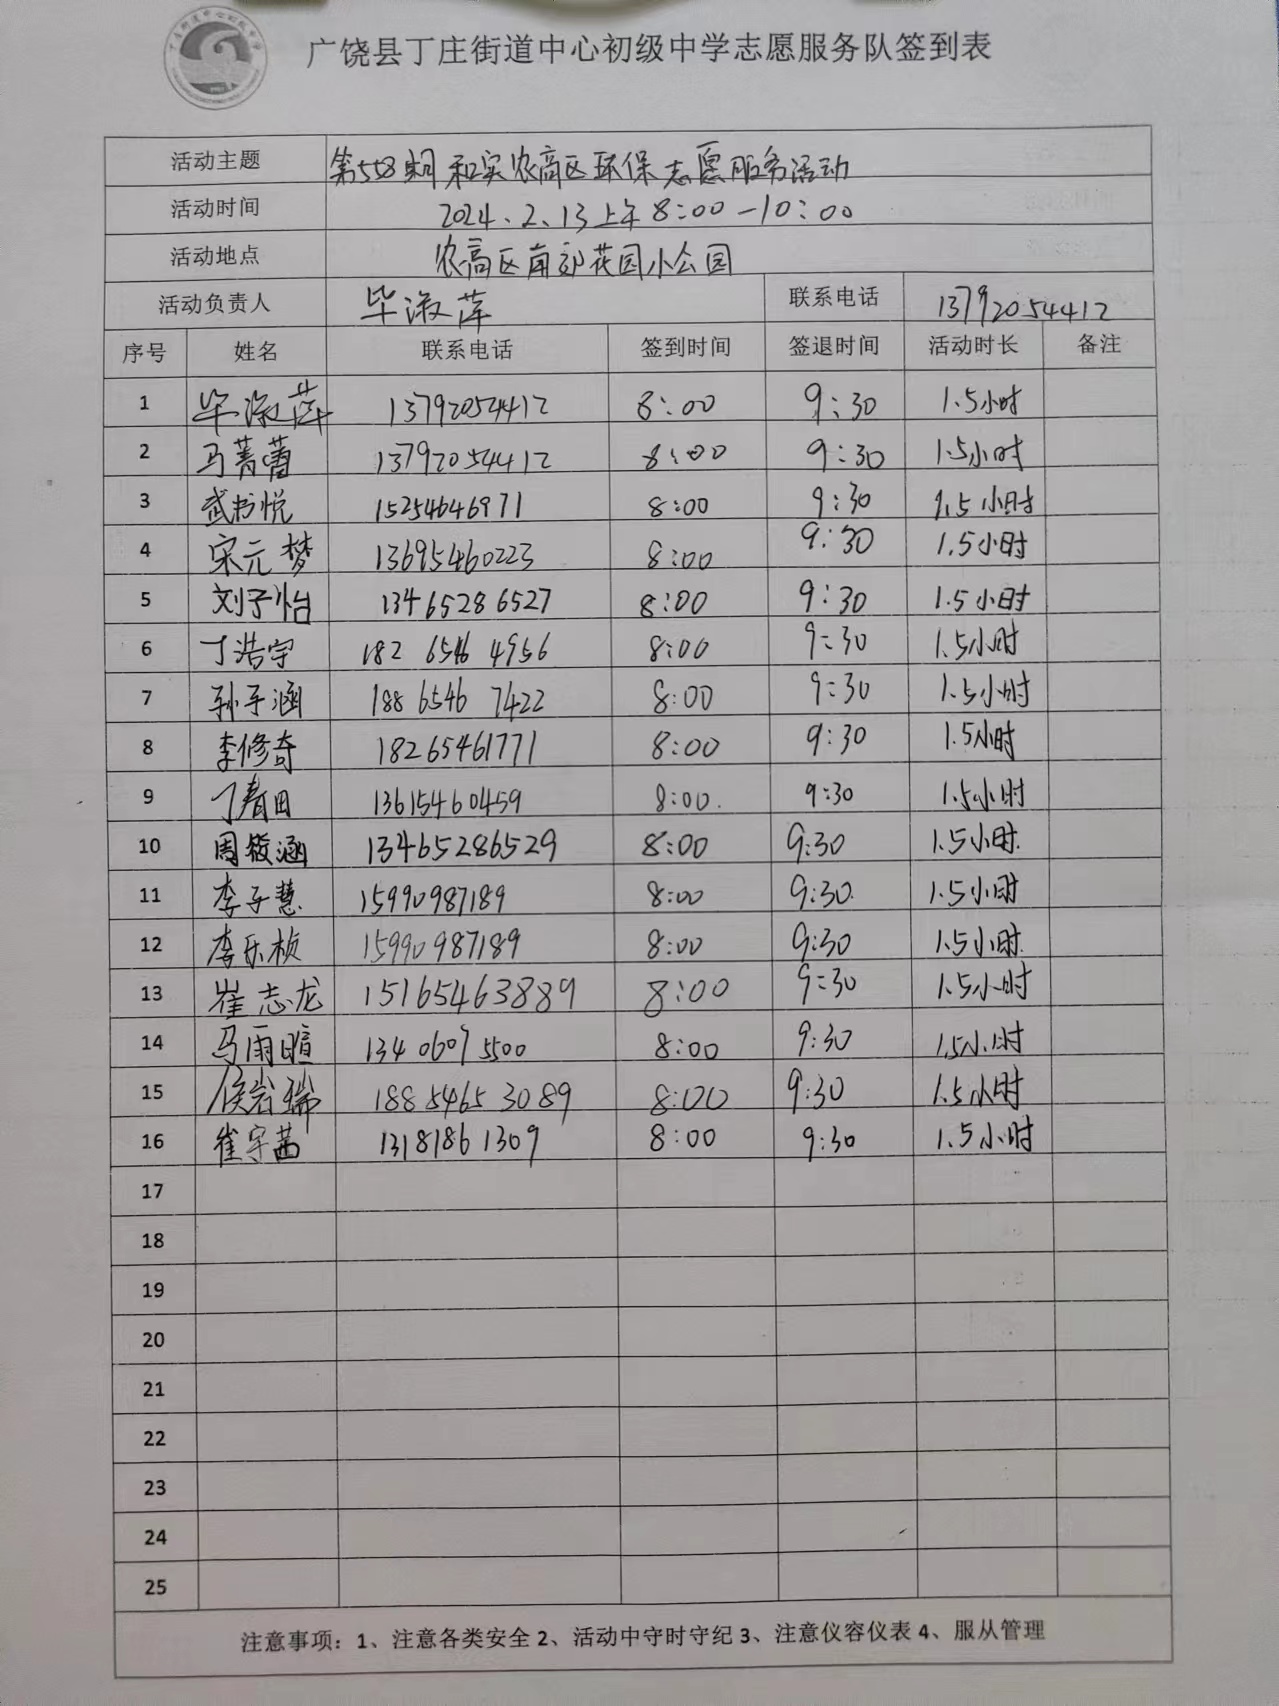 广饶县丁庄街道中心初级中学志愿服务队签到表
活动主题 第558期和实农高区环保志愿服务活动
活动时间 2024.2.13上午8:00-10:00
活动地点 农高区南部花园小公园
活动负责人 毕淑萍 联系电话 13792054412
序号 姓名 联系电话 签到时间 签退时间 活动时长 备注
1 毕淑萍 13792054412 8:00 9:30 1.5小时
2 马菁蕾 13792054412 8:00 9:30 1.5小时
3 武书悦 15254646971 8:00 9:30 1.5小时
4 宋元梦 13695460223 8:00 9:30 1.5小时
5 刘子怡 13465286527 8:00 9:30 1.5小时
6 丁浩宇 182 6546 4956 8:00 9:30 1.5小时
7 孙子涵 188 6546 7422 8:00 9:30 1.5小时
8 李修奇 18265461771 8:00 9:30 1.5小时
9 丁春田 13615460459 8:00 9:30 1.5小时
10 周筱涵 13465286529 8:00 9:30 1.5小时
11 李子慧 15990987189 8:00 9:30 1.5小时
12 李乐桢 15990987189 8:00 9:30 1.5小时
13 崔志龙 15165463889 8:00 9:30 1.5小时
14 马雨暄 134 0607 5500 8:00 9:30 1.5小时
15 侯岩瑞 188 5465 3089 8:00 9:30 1.5小时
16 崔宇茜 1318186 1309 8:00 9:30 1.5小时
17
18
19
20
21
22
23
24
25
注意事项：1、注意各类安全 2、活动中守时守纪 3、注意仪容仪表 4、服从管理